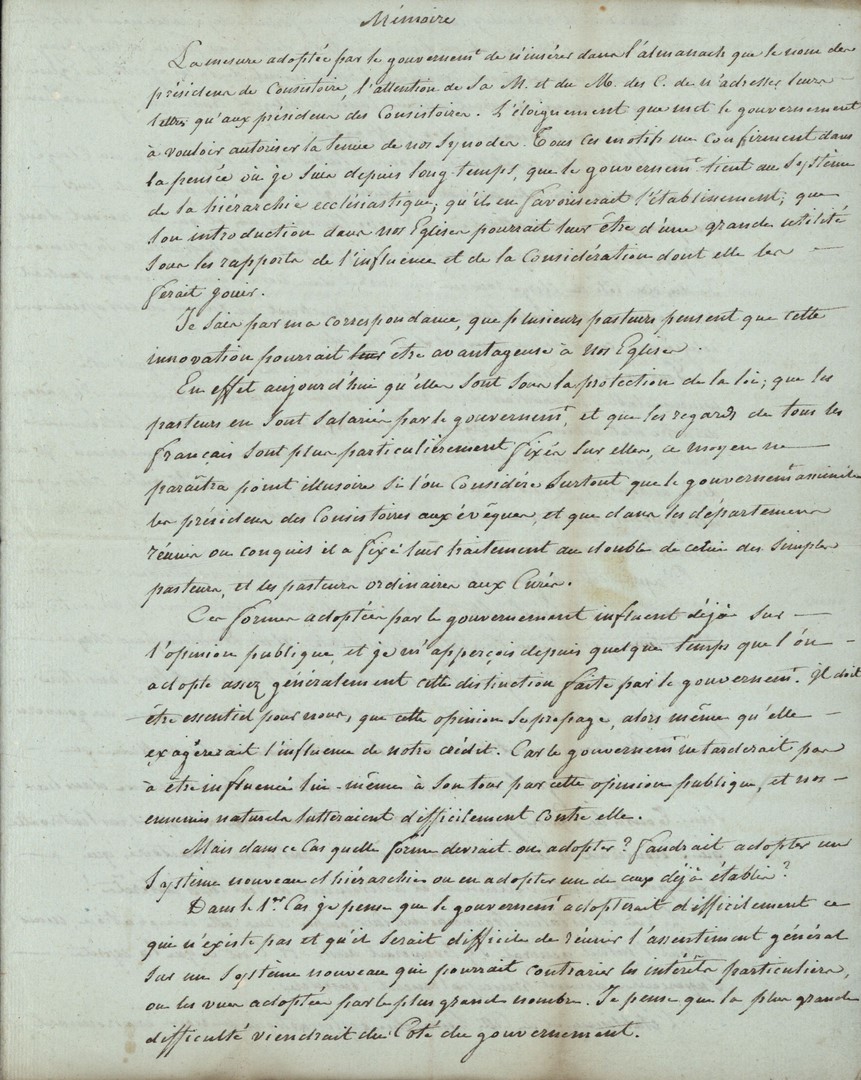 Mémoire
La mesure adoptée par le gouvernemt de n'insérer dans l'almanach que le nom des
présidens de Consistoire, l'attention de Sa M. et du M. des C. de n'adresser leurs
lettres qu'aux présidens des Consistoires. L'éloignement que met le gouvernement
à vouloir autoriser la tenue de nos Synodes. Tous ces motifs me confirment dans
la pensée où je suis depuis long-temps, que le gouvernemt tient au système
de la hiérarchie ecclésiastique; qu'il en favoriserait l'établissement; que
son introduction dans nos Eglises pourrait leur être d'une grande utilité
sous les rapports de l'influence et de la Considération dont elle les
ferait jouir.
Je sais par ma correspondance, que plusieurs pasteurs pensent que cette
innovation pourrait leur être avantageuse à nos Eglises.
En effet aujourd'hui qu'elles sont sous la protection de la loi; que les
pasteurs en sont salariés par le gouvernemt, et que les regards de tous les
français sont plus particulièrement fixés sur elles, ce moyen ne
paraîtra point illusoire si l'on Considère surtout que le gouvernemt assimile
les présidens des Consistoires aux évêques, et que dans les départemens
réunis ou conquis il a fixé leur traitement au double de celui des simples
pasteurs, et les pasteurs ordinaires aux Curés.
Ces formes adoptées par le gouvernement influent déjà sur
l'opinion publique, et je m'apperçois depuis quelque temps que l'on
adopte assez généralement cette distinction faite par le gouvernemt. Il doit
être essentiel pour nous, que cette opinion se propage, alors même qu'elle
exagèrerait l'influence de notre crédit. Car le gouvernemt ne tarderait pas
à être influencé lui-même à son tour par cette opinion publique, et nos
ennemis naturels lutteraient difficilement contre elle.
Mais dans ce Cas quelle forme devrait-on adopter? faudrait adopter un
système nouveau d'hiérarchie ou en adopter un de ceux déjà établis?
Dans le 1er Cas je pense que le gouvernemt adopterait difficilement ce
qui n'existe pas et qu'il serait difficile de réunir l'assentiment général
sur un système nouveau qui pourrait contrarier les intérêts particuliers,
ou les vues adoptées par le plus grand nombre. Je pense que la plus grande
difficulté viendrait du Coté du gouvernement.